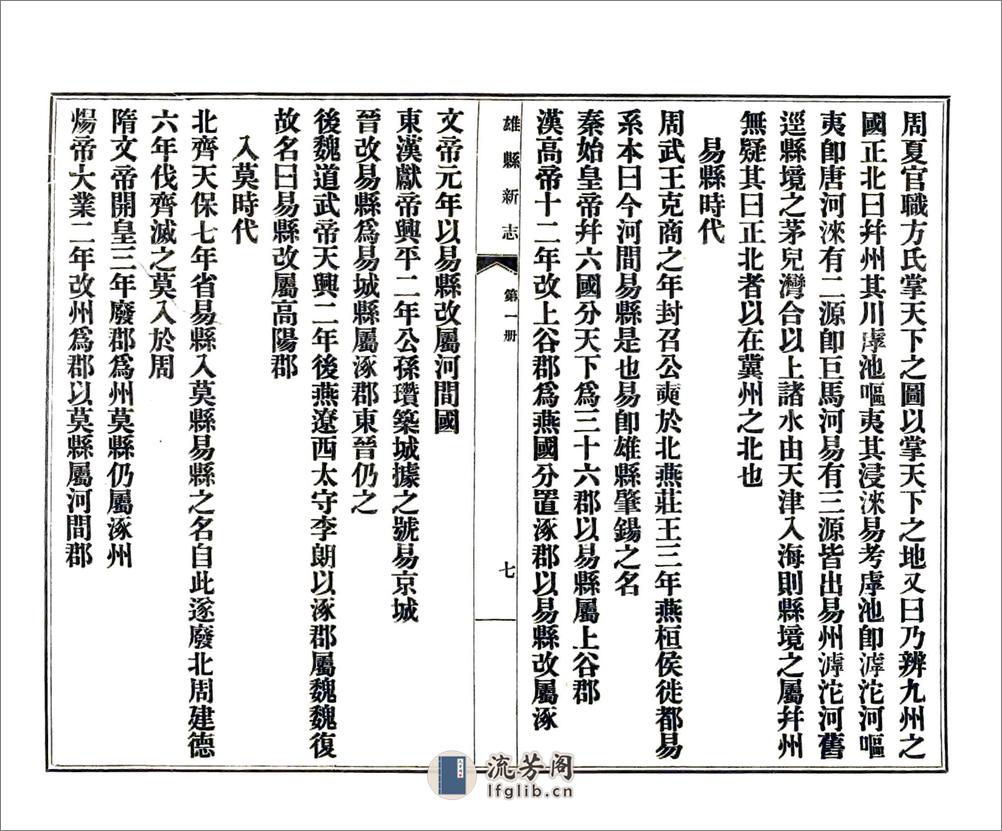 周夏官職方氏掌天下之圖以掌天下之地又曰乃辨九州之
國正北曰幷州其川虖池嘔夷其浸淶易考虖池卽滹沱河嘔
夷卽唐河淶有二源卽巨馬河易有三源皆出易州滹沱河舊
逕縣境之茅兒灣合以上諸水由天津入海則縣境之屬幷州
無疑其曰正北者以在冀州之北也
易縣時代
周武王克商之年封召公奭於北燕莊王三年燕桓侯徙都易
系本曰今河間易縣是也易卽雄縣肇錫之名
秦始皇帝幷六國分天下爲三十六郡以易縣屬上谷郡
漢高帝十二年改上谷郡爲燕國分置涿郡以易縣改屬涿
雄縣新志
第一册
七
文帝元年以易縣改屬河間國
東漢獻帝興平二年公孫瓚築城據之號易京城
晉改易縣爲易城縣屬涿郡東晉仍之
後魏道武帝天興二年後燕遼西太守李朗以涿郡屬魏魏復
故名曰易縣改屬高陽郡
入莫時代
北齊天保七年省易縣入莫縣易縣之名自此遂廢北周建德
六年伐齊滅之莫入於周
隋文帝開皇三年廢郡爲州莫縣仍屬涿州
煬帝大業二年改州爲郡以莫縣屬河間郡
流芳阁
lfglib.cn